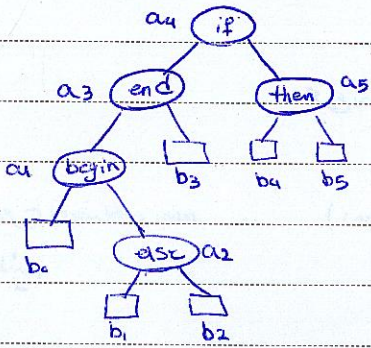 a4 if
a3 end then a5
a1 begin
b3 b4 b5
else a2
b0
b1 b2